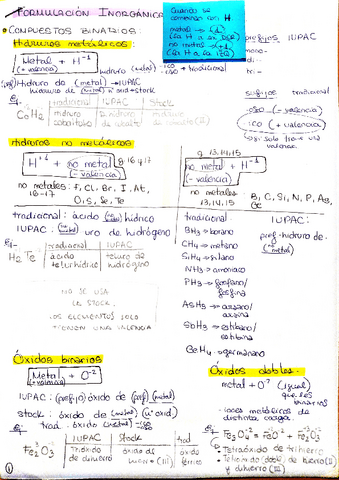 FORMULACIÓN INORGÁNICA
Cuando se combinan con H.
metal → (-1)
no metal → (+1)
prefijos IUPAC
mono-
di-
tri-
• COMPUESTOS BINARIOS:
Hidruros metálicos:
Metal + H⁻¹
(= valencia)
-ico → tradicional
sufijos tradicional
-oso (- valencia)
-ico (+ valencia)
(pref) Hidruro de (metal) → IUPAC
hidruro de (metal) nº oxid → stock
ej- tradicional | IUPAC | Stock
CoH₂ hidruro cobaltoso | dihidruro de cobalto | hidruro de cobalto (II)
Hidruros no metálicos
H⁺¹ + no metal g. 16 y 17
(- valencia)
no metales: F, Cl, Br, I, At,
16-17 O, S, Se, Te
tradicional: ácido (no metal) hídrico
IUPAC: (no metal) uro de hidrógeno
ej- tradicional | IUPAC
H₂Te ácido telurhídrico | teluro de hidrógeno
NO SE USA
LA STOCK.
LOS ELEMENTOS SOLO
TIENEN UNA VALENCIA
g. 13, 14, 15
no metal + H⁺¹
(- valencia)
no metales
13, 14, 15
B, C, Si, N, P, As,
tradicional:
BH₃ → borano
CH₄ → metano
SiH₄ → silano
NH₃ → amoniaco
PH₃ → fosfano/
fosfina
AsH₃ → arsano/
arsina
SbH₃ → estibano/
estibina
GeH₄ → germano
IUPAC:
pref-hidruro de-
(no metal)
Óxidos binarios
Metal + O⁻²
(= valencia)
IUPAC: (prefijo) óxido de (pref) (metal)
stock: óxido de (metal) (nº oxid)
trad: óxido (metal) -oso -ico
ej- IUPAC | Stock | trad
Fe₂⁺³O₃⁻² Trióxido de dihierro | óxido de hierro (III) | óxido férrico
Óxidos dobles
metal + O⁻² (igual
que los
binarios)
- iones metálicos de
distinta carga
ej- Fe₃O₄ = FeO + Fe₂O₃
- Tetraóxido de trihierro
- Tetraóxido (doble) de hierro (II)
y dihierro (III)
1